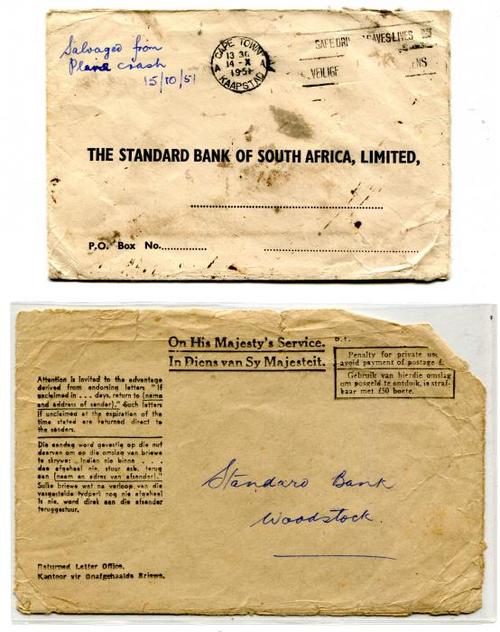 Salvaged from
Plane crash
15/10/51
CAPE TOWN
13 30
14 - X
1951
A A
KAAPSTAD
SAFE DRI AVES LIVES
VEILIGE ENS
THE STANDARD BANK OF SOUTH AFRICA, LIMITED,
P.O. Box No.
On His Majesty's Service.
In Diens van Sy Majesteit.
Penalty for private use
avoid payment of postage £
Gebruik van hierdie omslag
om posgeld te ontduik, is straf-
baar met £50 boete.
Attention is invited to the advantage
derived from endorsing letters "If
unclaimed in . . . days, return to (name
and address of sender)." Such letters
if unclaimed at the expiration of the
time stated are returned direct to
the senders.
Die aandag word gevestig op die nut
daarvan om op die omslag van briewe
te skrywe: "Indien nie binne . . . .
dae afgehaal nie, stuur asb. terug
aan (naam en adres van afsender)."
Sulke briewe wat na verloop van die
vasgestelde tydperk nog nie afgehaal
is nie, word direk aan die afsender
teruggestuur.
Standard Bank
Woodstock.
Returned Letter Office.
Kantoor vir Onafgehaalde Briewe.